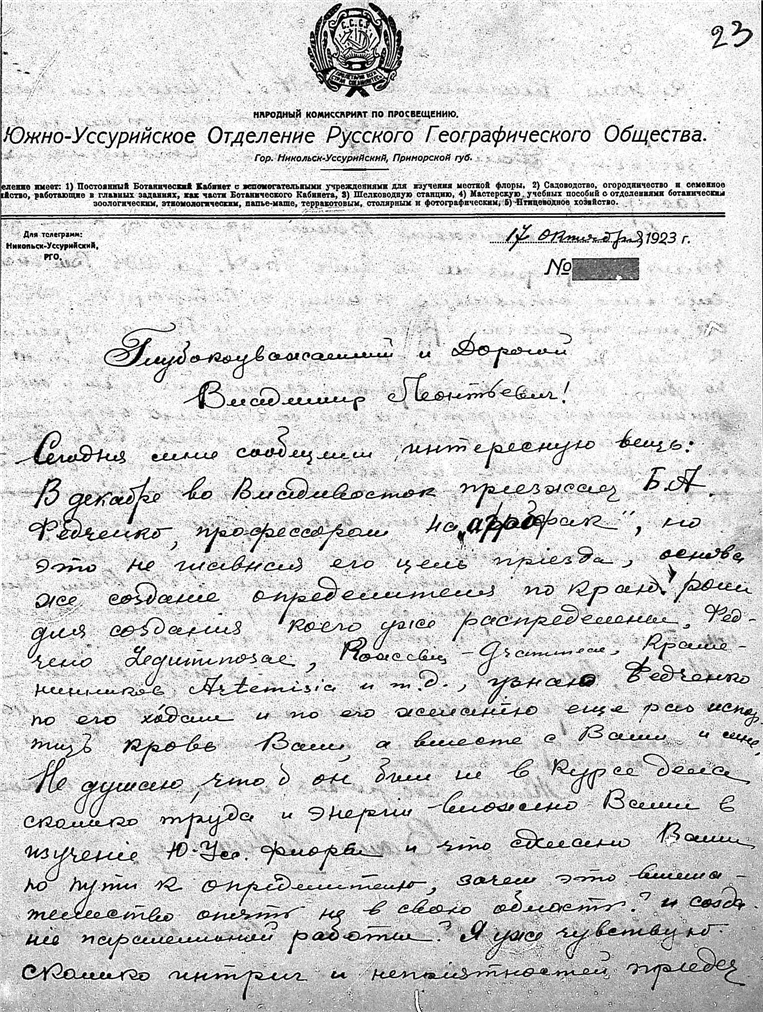 23
С.С.С.Р.
НАРОДНЫЙ КОМИССАРИАТ ПО ПРОСВЕЩЕНИЮ.
Южно-Уссурийское Отделение Русского Географического Общества.
Гор. Никольск-Уссурийский, Приморской губ.
еление имеет: 1) Постоянный Ботанический Кабинет с вспомогательными учреждениями для изучения местной флоры, 2) Садоводство, огородничество и семенное
яйство, работающие в главных заданиях, как части Ботанического Кабинета, 3) Шелководную станцию, 4) Мастерскую, учебных пособий с отделениями ботаническим
зоологическим, этномологическим, папье-маше, терракотовым, столярным и фотографическим, 5) Птицеводное хозяйство.
Для телеграмм:
Никольск-Уссурийский,
РГО.
17 октября 1923 г.
№
Глубокоуважаемый и Дорогой
Владимир Леонтьевич!
Сегодня мне сообщили интересную вещь:
В декабре во Владивосток приезжает Б.А.
Федченко, профессором на „агрофак", но
это не главная его цель приезда, основа
же создание определителя по краю, роли
для создания коего уже распределены, Фед-
чено Leguminosae, Рожевиц - Gramineae, Краше-
нинников Artemisia и т.д., узнаю Федченко
по его ходам и по его желанію еще раз испор-
тить кровь Вам, а вместе с Вами и мне.
Не думаю, что б он был не в курсе дела
сколько труда и энергіи вложено Вами в
изученіе Ю-Усс. флоры и что сделано Вами
по пути к определителю, зачем это вмеша-
тельство опять не в свою область? и созда-
ніе параллельной работы? Я уже чувствую
сколько интриг и непріятностей придет